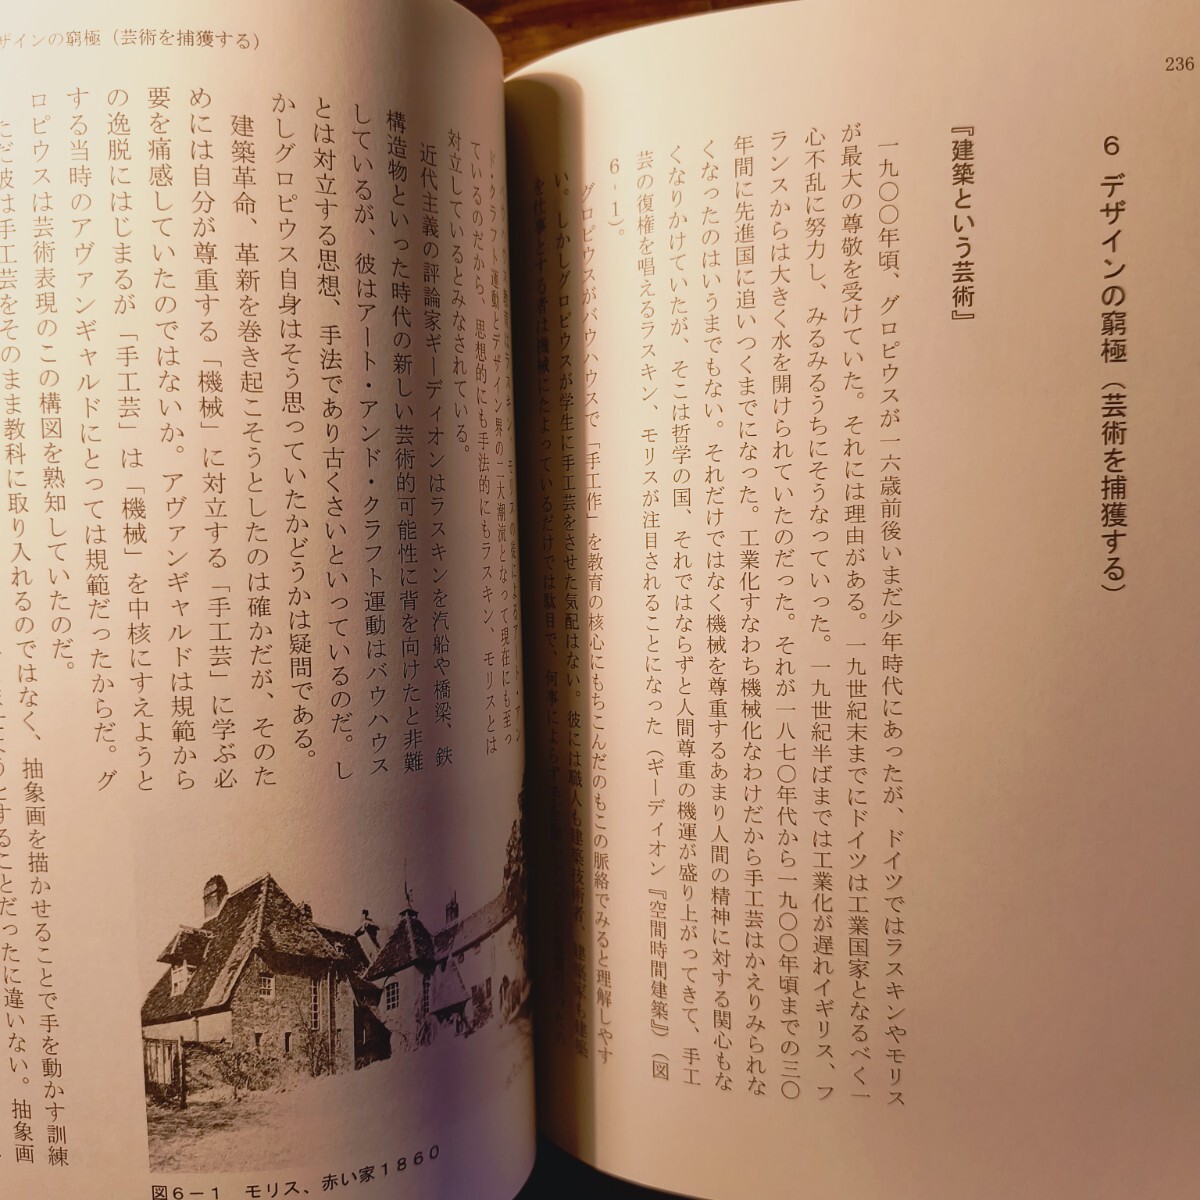 236
6 デザインの窮極（芸術を捕獲する）
『建築という芸術』
一九〇〇年頃、グロピウスが一六歳前後いまだ少年時代にあったが、ドイツではラスキンやモリス
が最大の尊敬を受けていた。それには理由がある。一九世紀末までにドイツは工業国家となるべく一
心不乱に努力し、みるみるうちにそうなっていった。一九世紀半ばまでは工業化が遅れイギリス、フ
ランスからは大きく水を開けられていたのだった。それが一八七〇年代から一九〇〇年頃までの三〇
年間に先進国に追いつくまでになった。工業化すなわち機械化なわけだから手工芸はかえりみられな
くなったのはいうまでもない。それだけではなく機械を尊重するあまり人間の精神に対する関心もな
くなりかけていたが、そこは哲学の国、それではならずと人間尊重の機運が盛り上がってきて、手工
芸の復権を唱えるラスキン、モリスが注目されることになった（ギーディオン『空間時間建築』）（図
6-1）。
グロピウスがバウハウスで「手工作」を教育の核心にもちこんだのもこの脈絡でみると理解しやす
い。しかしグロピウスが学生に手工芸をさせた気配はない。彼には職人も建築技術者、建築家も建築
を仕事とする者は機械にたよっているだけでは駄目で、何事によらず
ザインの窮極（芸術を捕獲する）
ドクラフト運動とデザイン界の二大潮流となって現在にも至っ
ているのだから、思想的にも手法的にもラスキン、モリスとは
対立しているとみなされている。
近代主義の評論家ギーディオンはラスキンを汽船や橋梁、鉄
構造物といった時代の新しい芸術的可能性に背を向けたと非難
しているが、彼はアート・アンド・クラフト運動はバウハウス
とは対立する思想、手法であり古くさいといっているのだ。し
かしグロピウス自身はそう思っていたかどうかは疑問である。
建築革命、革新を巻き起こそうとしたのは確かだが、そのた
めには自分が尊重する「機械」に対立する「手工芸」に学ぶ必
要を痛感していたのではないか。アヴァンギャルドは規範から
の逸脱にはじまるが「手工芸」は「機械」を中核にすえようと
する当時のアヴァンギャルドにとっては規範だったからだ。グ
ロピウスは芸術表現のこの構図を熟知していたのだ。
ただ彼は手工芸をそのまま教科に取り入れるのではなく、抽象画を描かせることで手を動かす訓練
ようとすることだったに違いない。抽象画
図6-1 モリス、赤い家1860